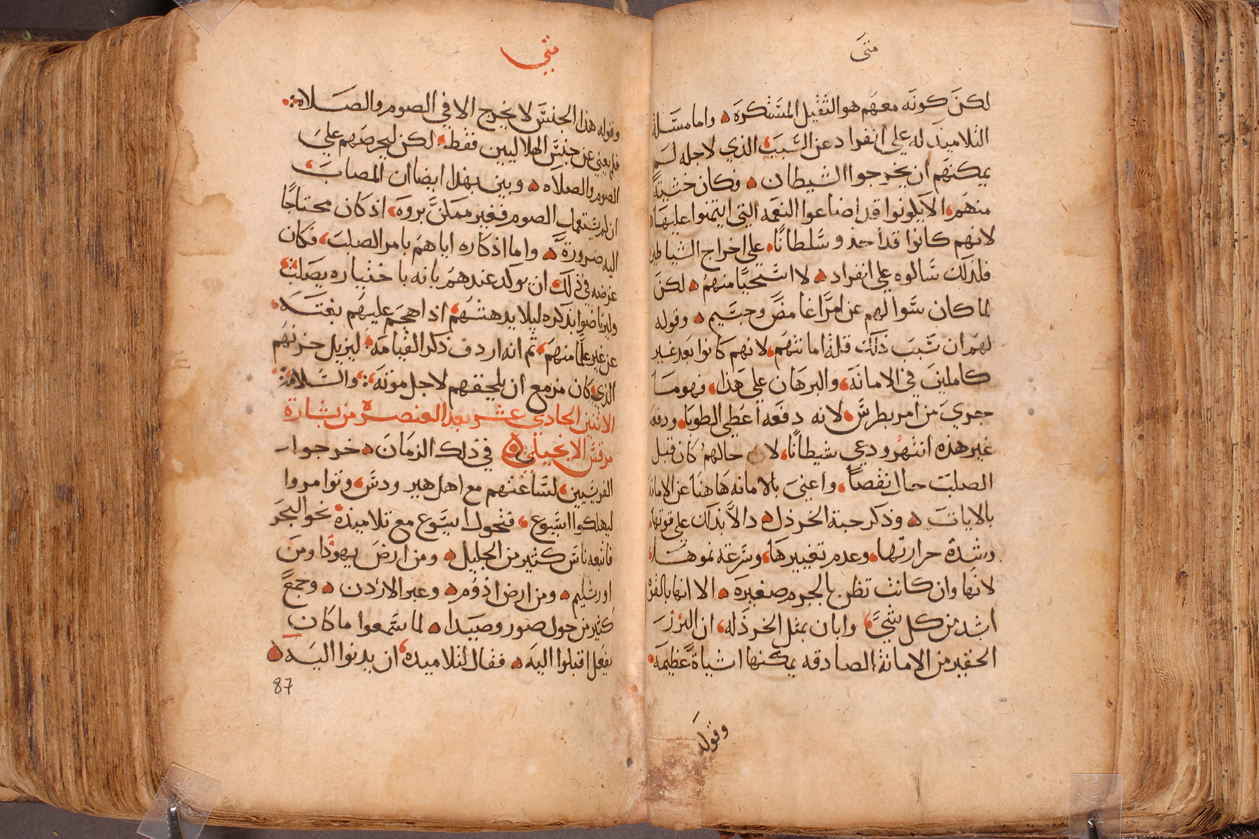 متى
لكن كونه معهم هو الثقيل المستكره ۞ واما مسلة
التلاميد له على انفراد عن السبب الذي لاجله لم
يمكنهم ان يخرجوا الشيطان ۞ فكان خشية
منهم الا يكونوا قد اضاعوا النعمه التي ايتمنوا عليها
لانهم كانوا قد اخذوا سلطانًا على اخراج الشياطين
فلذلك سالوه على انفراد ۞ لا استحيا منهم ۞ لكن
لما كان سوالهم عن امرًا غامض وجسيم ۞ وقوله
لهم ان سبب ذلك قلة امانتهم لانهم كانوا بعد غير
كاملين في الامانة والبرهان على هذا فهو ما
جرى من امر بطرس لانه دفعه اعطي الطوبا ودفعه
غير هذه انتهر ودعي شيطانًا لان حالهم كان قبل
الصلب حال نقصًا واعني بالامانه هاهنا عن الامانة
بالايات ۞ وذكر حبة الخردل دالا بذلك على قوتها
وشدة حرارتها وعدم تغييرها وسرعه نموها
لانها وان كانت تظن بالجرم صغيره ۞ الا انها بالقوة
اشد من كل شيء وابان بمثل الخردله ان البزر
الحقير من الامانة الصادقه يمكنها اشياة عظيمه
وقوله
متى
وقوله هذا الجنس لا يخرج الا في الصوم والصلاه
فلم يعني عن جنس الهلاليين فقط لكن ليحرضهم على
الصوم والصلاه ۞ وبين بهذا ايضا ان المصاب
ان لم يستعمل الصوم فغير ممكن بروه اذ كان محتاجًا
اليه ضرورة ۞ واما اذكاره اياهم بامر الصلب فكان
غرضه في ذلك ان يوكد عندهم بانه باختياره يصلب
وليرتاضوا بذكره ليلا يدهشهم اذا هجم عليهم بغتة
عن غير علمًا منهم ثم انه اردف ذكر القيامه ليزيل حزنهم
الذي كان مزمع ان يلحقهم لاجل موته والسلام
الاثنين الحادي عشر بعد العنصرة من بشارة
مرقس الانجيلي في ذلك الزمان خرجوا
الفريسيين لساعتهم مع اهل هيرودس وتوامروا
ليهلكوا ايسوع فتحول ايسوع مع تلاميذه نحو البحر
فاتبعه ناس كثير من الجليل ۞ ومن ارض يهوذا ومن
اورشليم ۞ ومن ارض اذوم ۞ وعبر الاردن ۞ وجمعً
كثير من حول صور وصيدا ۞ لما سمعوا ما كان
يفعل اقبلوا اليه ۞ فقال لتلاميذه ان يدنوا اليه ۞
87